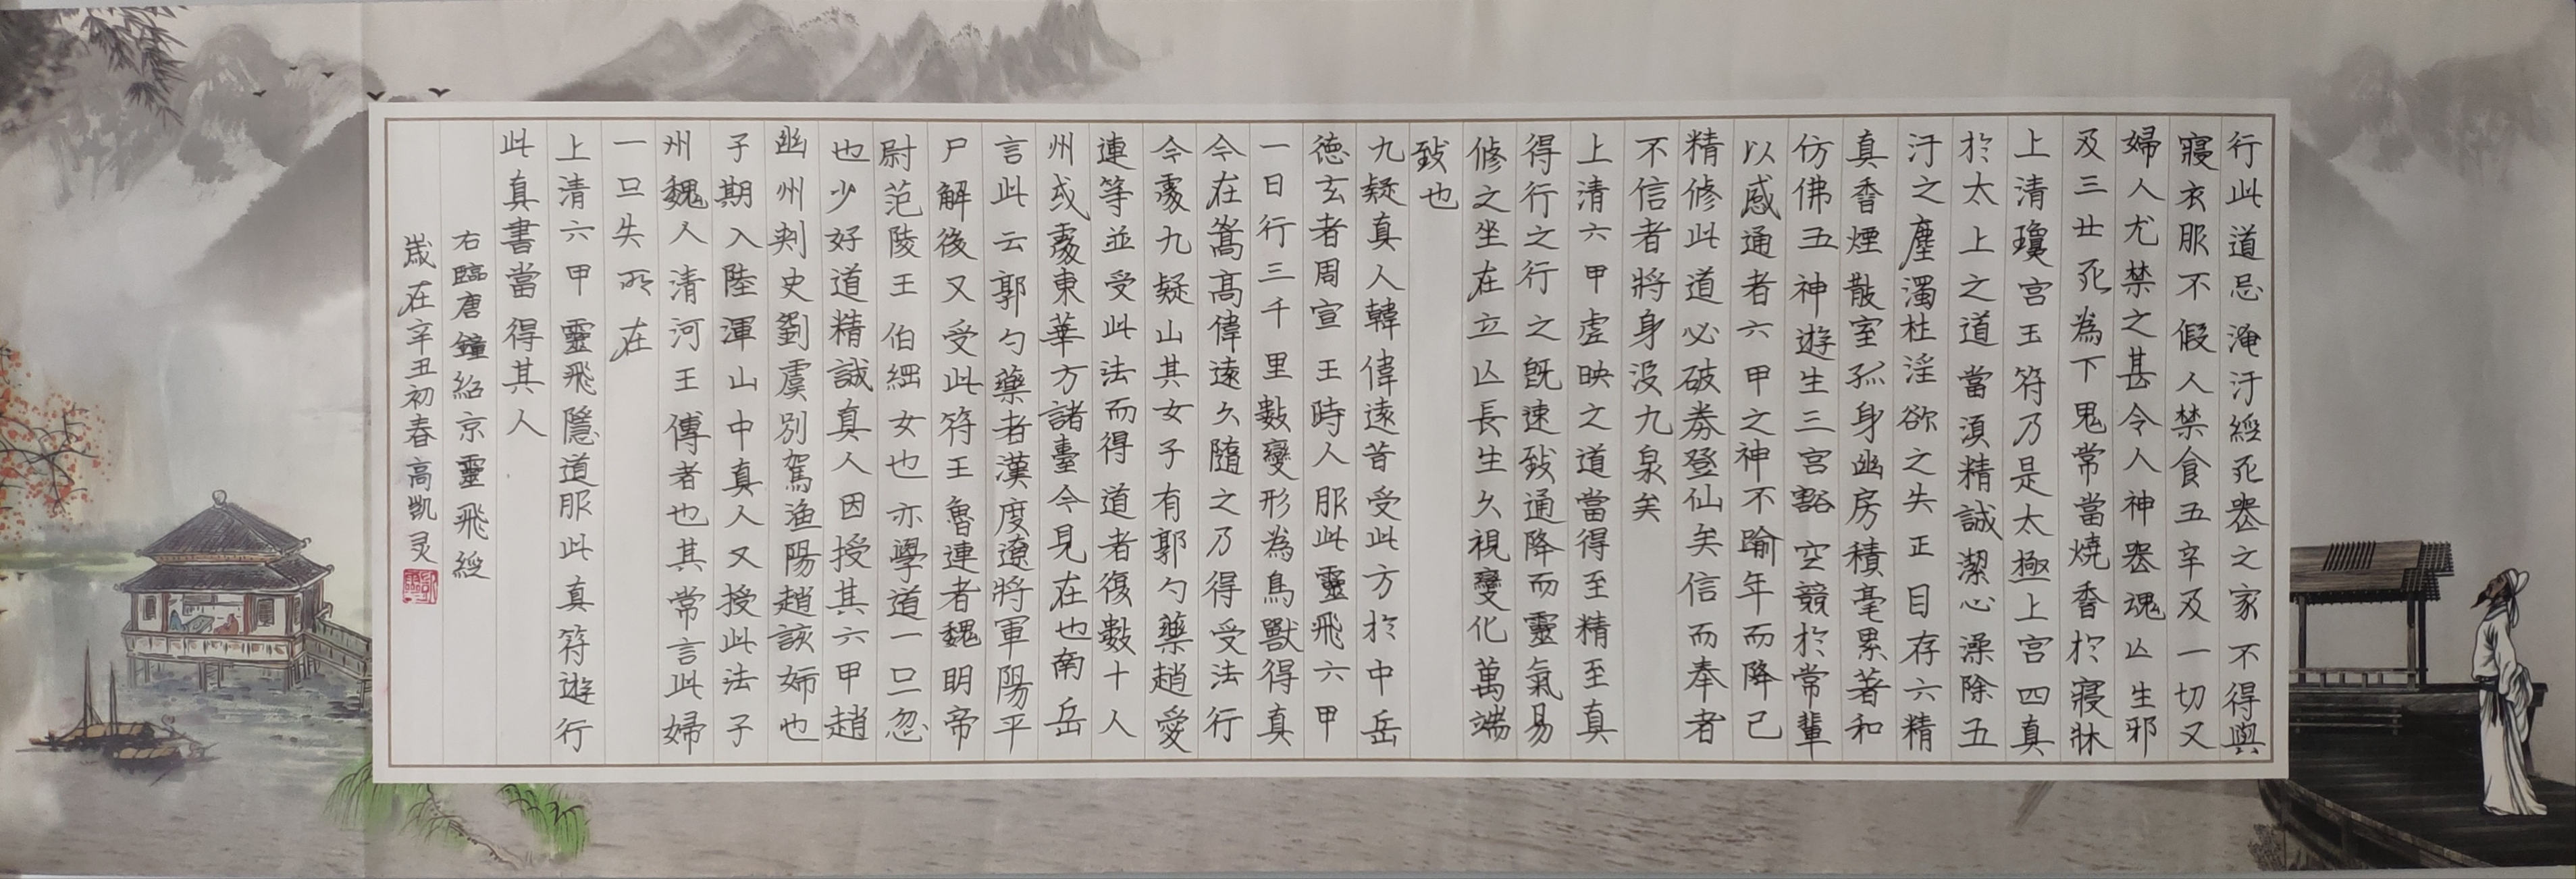 行此道忌淹汙經死丧之家不得與
寢衣服不假人禁食五辛及一切又
婦人尤禁之甚令人神丧魂亾生邪
及三世死為下鬼常當燒香於寢牀
上清瓊宮玉符乃是太極上宮四真
於太上之道當湏精誠潔心澡除五
汙之塵濁杜淫欲之失正目存六精
真香煙散室孤身幽房積毫累著和
仿佛五神遊生三宮豁空競於常輩
以感通者六甲之神不踰年而降已
精修此道必破劵登仙矣信而奉者
不信者將身沒九泉矣
上清六甲虛映之道當得至精至真
得行之行之旣速致通降而靈氣易
修之坐在立亾長生久視變化萬端
致也
九疑真人韓偉遠昔受此方於中岳
德玄者周宣王時人服此靈飛六甲
一日行三千里數變形為鳥獸得真
今在嵩高偉遠久隨之乃得受法行
今處九疑山其女子有郭勺藥趙愛
連等並受此法而得道者復數十人
州或處東華方諸臺今見在也南岳
言此云郭勺藥者漢度遼將軍陽平
尸解後又受此符王魯連者魏明帝
尉范陵王伯綱女也亦學道一旦忽
也少好道精誠真人因授其六甲趙
幽州刾史劉虞別駕渔陽趙該婦也
子期入陸渾山中真人又授此法子
州魏人清河王傅者也其常言此婦
一旦失所在
上清六甲靈飛隱道服此真符遊行
此真書當得其人
右臨唐鐘紹京靈飛經
嵗在辛丑初春高凯灵